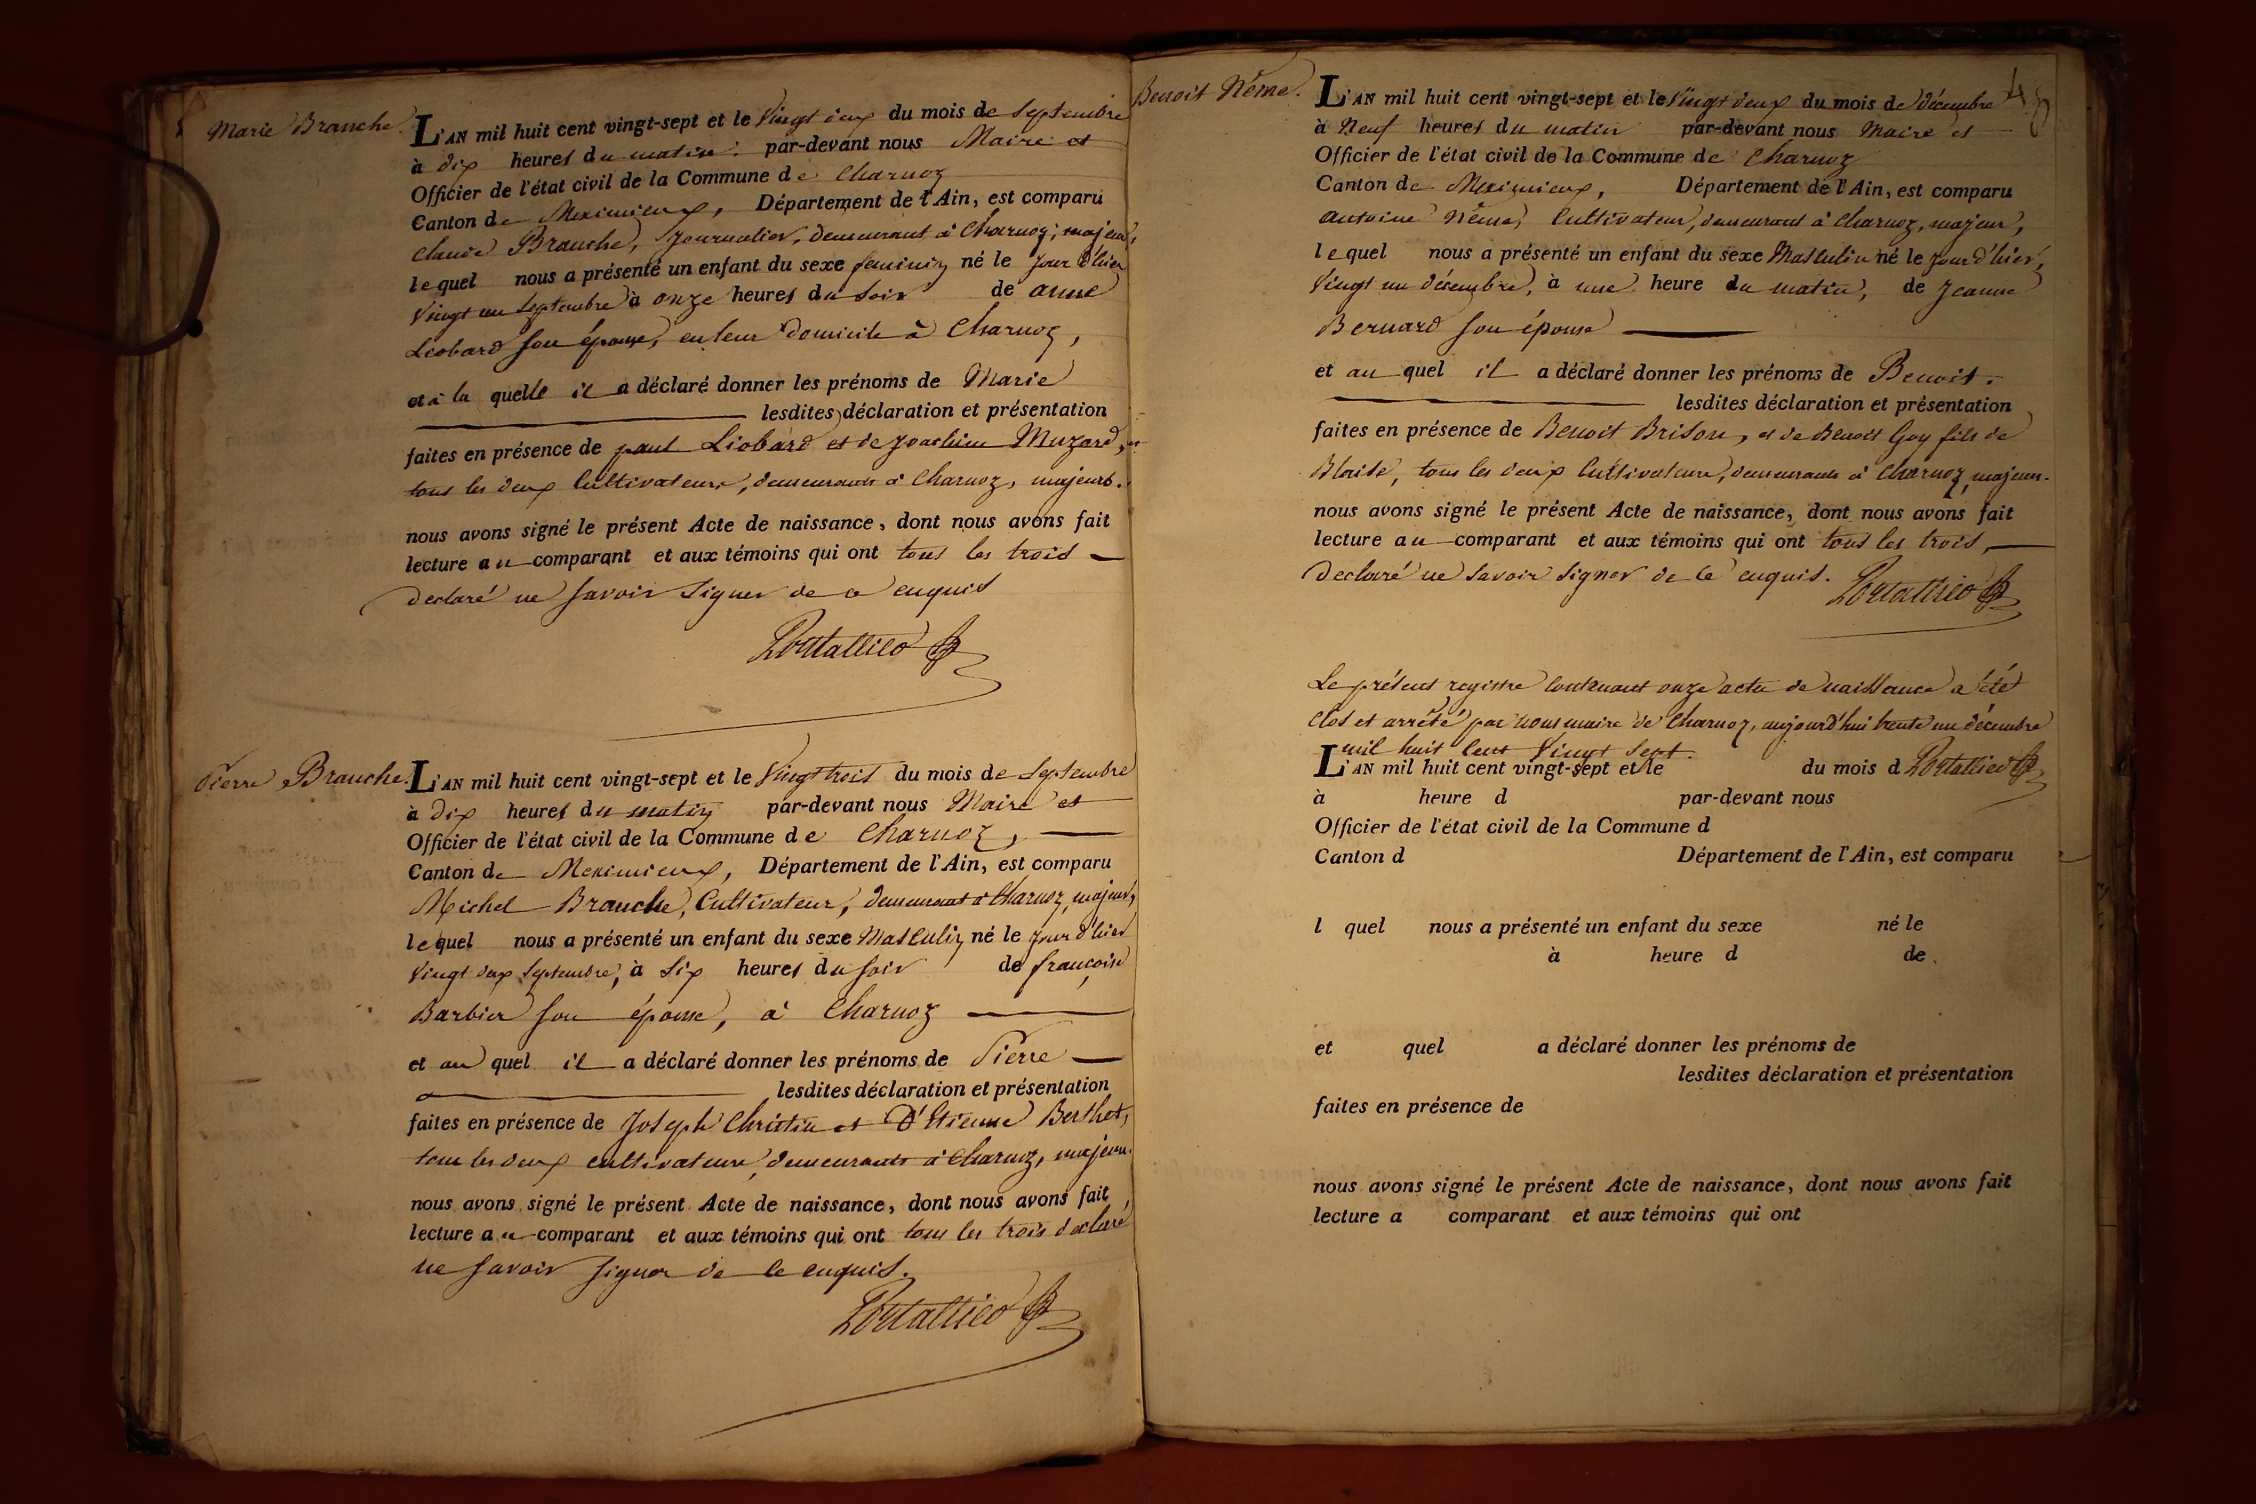 Marie Branche.
L'AN mil huit cent vingt-sept et le Vingt deux du mois de Septembre
à dix heures du matin par-devant nous Maire et
Officier de l'état civil de la Commune de Charnoz
Canton de Meximieux, Département de l'Ain, est comparu
Claude Branche, Journalier, demeurant à Charnoz, majeur,
lequel nous a présenté un enfant du sexe féminin né le jour d'hier
Vingt un Septembre à onze heures du soir de anne
Leobard son épouse, en leur domicile à Charnoz,
et à la quelle il a déclaré donner les prénoms de Marie
lesdites déclaration et présentation
faites en présence de paul Liobard et de Joachim Muzard,
tous les deux Cultivateurs, demeurants à Charnoz, majeurs.
nous avons signé le présent Acte de naissance, dont nous avons fait
lecture au comparant et aux témoins qui ont tous les trois
declaré ne savoir signer de ce enquis
Pierre Branche.
L'AN mil huit cent vingt-sept et le Vingt trois du mois de Septembre
à Dix heures du matin par-devant nous Maire et
Officier de l'état civil de la Commune de Charnoz,
Canton de Meximieux, Département de l'Ain, est comparu
Michel Branche, Cultivateur, demeurant à Charnoz, majeur,
lequel nous a présenté un enfant du sexe Masculin né le jour d'hier
Vingt deux Septembre, à Six heures du soir de françoise
Barbier son épouse, à Charnoz
et au quel il a déclaré donner les prénoms de Pierre
lesdites déclaration et présentation
faites en présence de Joseph Christin et D'Etienne Berthet,
tous les deux cultivateurs, demeurants à Charnoz, majeurs.
nous avons signé le présent Acte de naissance, dont nous avons fait
lecture au comparant et aux témoins qui ont tous les trois déclaré
ne savoir signer de ce enquis.
Benoit Nême.
L'AN mil huit cent vingt-sept et le Vingt deux du mois de décembre
à Neuf heures du matin par-devant nous Maire et
Officier de l'état civil de la Commune de Charnoz
Canton de Meximieux, Département de l'Ain, est comparu
antoine Nême, Cultivateur, demeurant à Charnoz, majeur,
lequel nous a présenté un enfant du sexe Masculin né le jour d'hier,
Vingt un décembre, à une heure du matin, de Jeanne
Bernard son épouse
et au quel il a déclaré donner les prénoms de Benoit.
lesdites déclaration et présentation
faites en présence de Benoit Brison, et de Benoit Goy fils de
Blaise, tous les deux Cultivateurs, demeurants à Charnoz, majeurs.
nous avons signé le présent Acte de naissance, dont nous avons fait
lecture au comparant et aux témoins qui ont tous les trois,
Declaré ne savoir signer de ce enquis.
Le présent registre contenant onze actes de naissance a été
clos et arrêté par nous maire de Charnoz, aujourd'hui trente un décembre
mil huit cent Vingt Sept.
L'AN mil huit cent vingt-sept et le du mois d
à heure d par-devant nous
Officier de l'état civil de la Commune d
Canton d Département de l'Ain, est comparu
l quel nous a présenté un enfant du sexe né le
à heure d de
et quel a déclaré donner les prénoms de
lesdites déclaration et présentation
faites en présence de
nous avons signé le présent Acte de naissance, dont nous avons fait
lecture a comparant et aux témoins qui ont